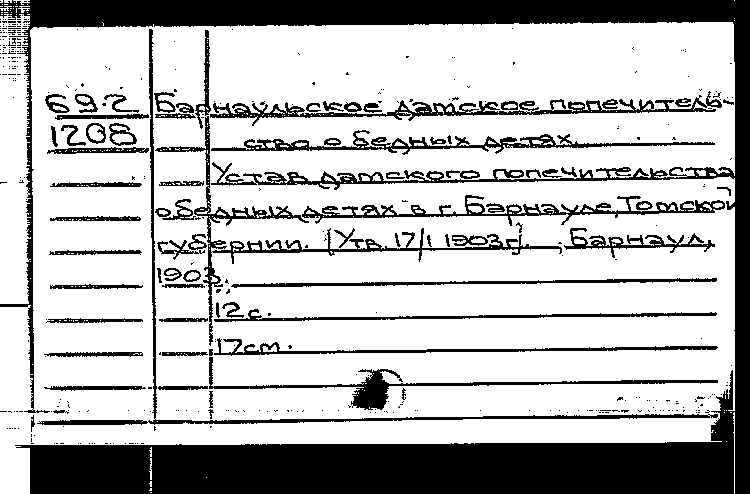 69.2
1208
Барнаульское дамское попечитель-
ство о бедных детях.
Устав дамского попечительства
о бедных детях в г. Барнауле, Томской
губернии. [Утв. 17/I 1903 г]. , Барнаул,
1903.
12 с.
17 см.